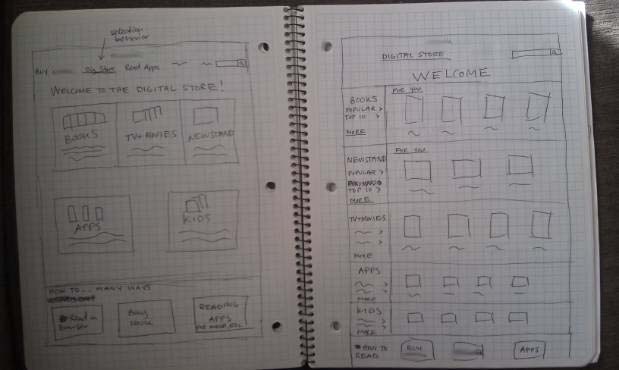 selection
behavior
Buy
Dig Store
Read Apps
WELCOME TO THE DIGITAL STORE!
BOOKS
TV+MOVIES
NEWSTAND
APPS
KIDS
HOW TO... MANY WAYS
Read in
Browser
Buy
NOOK
READING
APPS
DIGITAL STORE
WELCOME
BOOKS
POPULAR >
TOP 10 >
MORE
FOR YOU
NEWSTAND
POPULAR >
TOP 10 >
MORE
FOR YOU
MORE
APPS
MORE
KIDS
MORE
HOW TO
READ
BUY
APPS